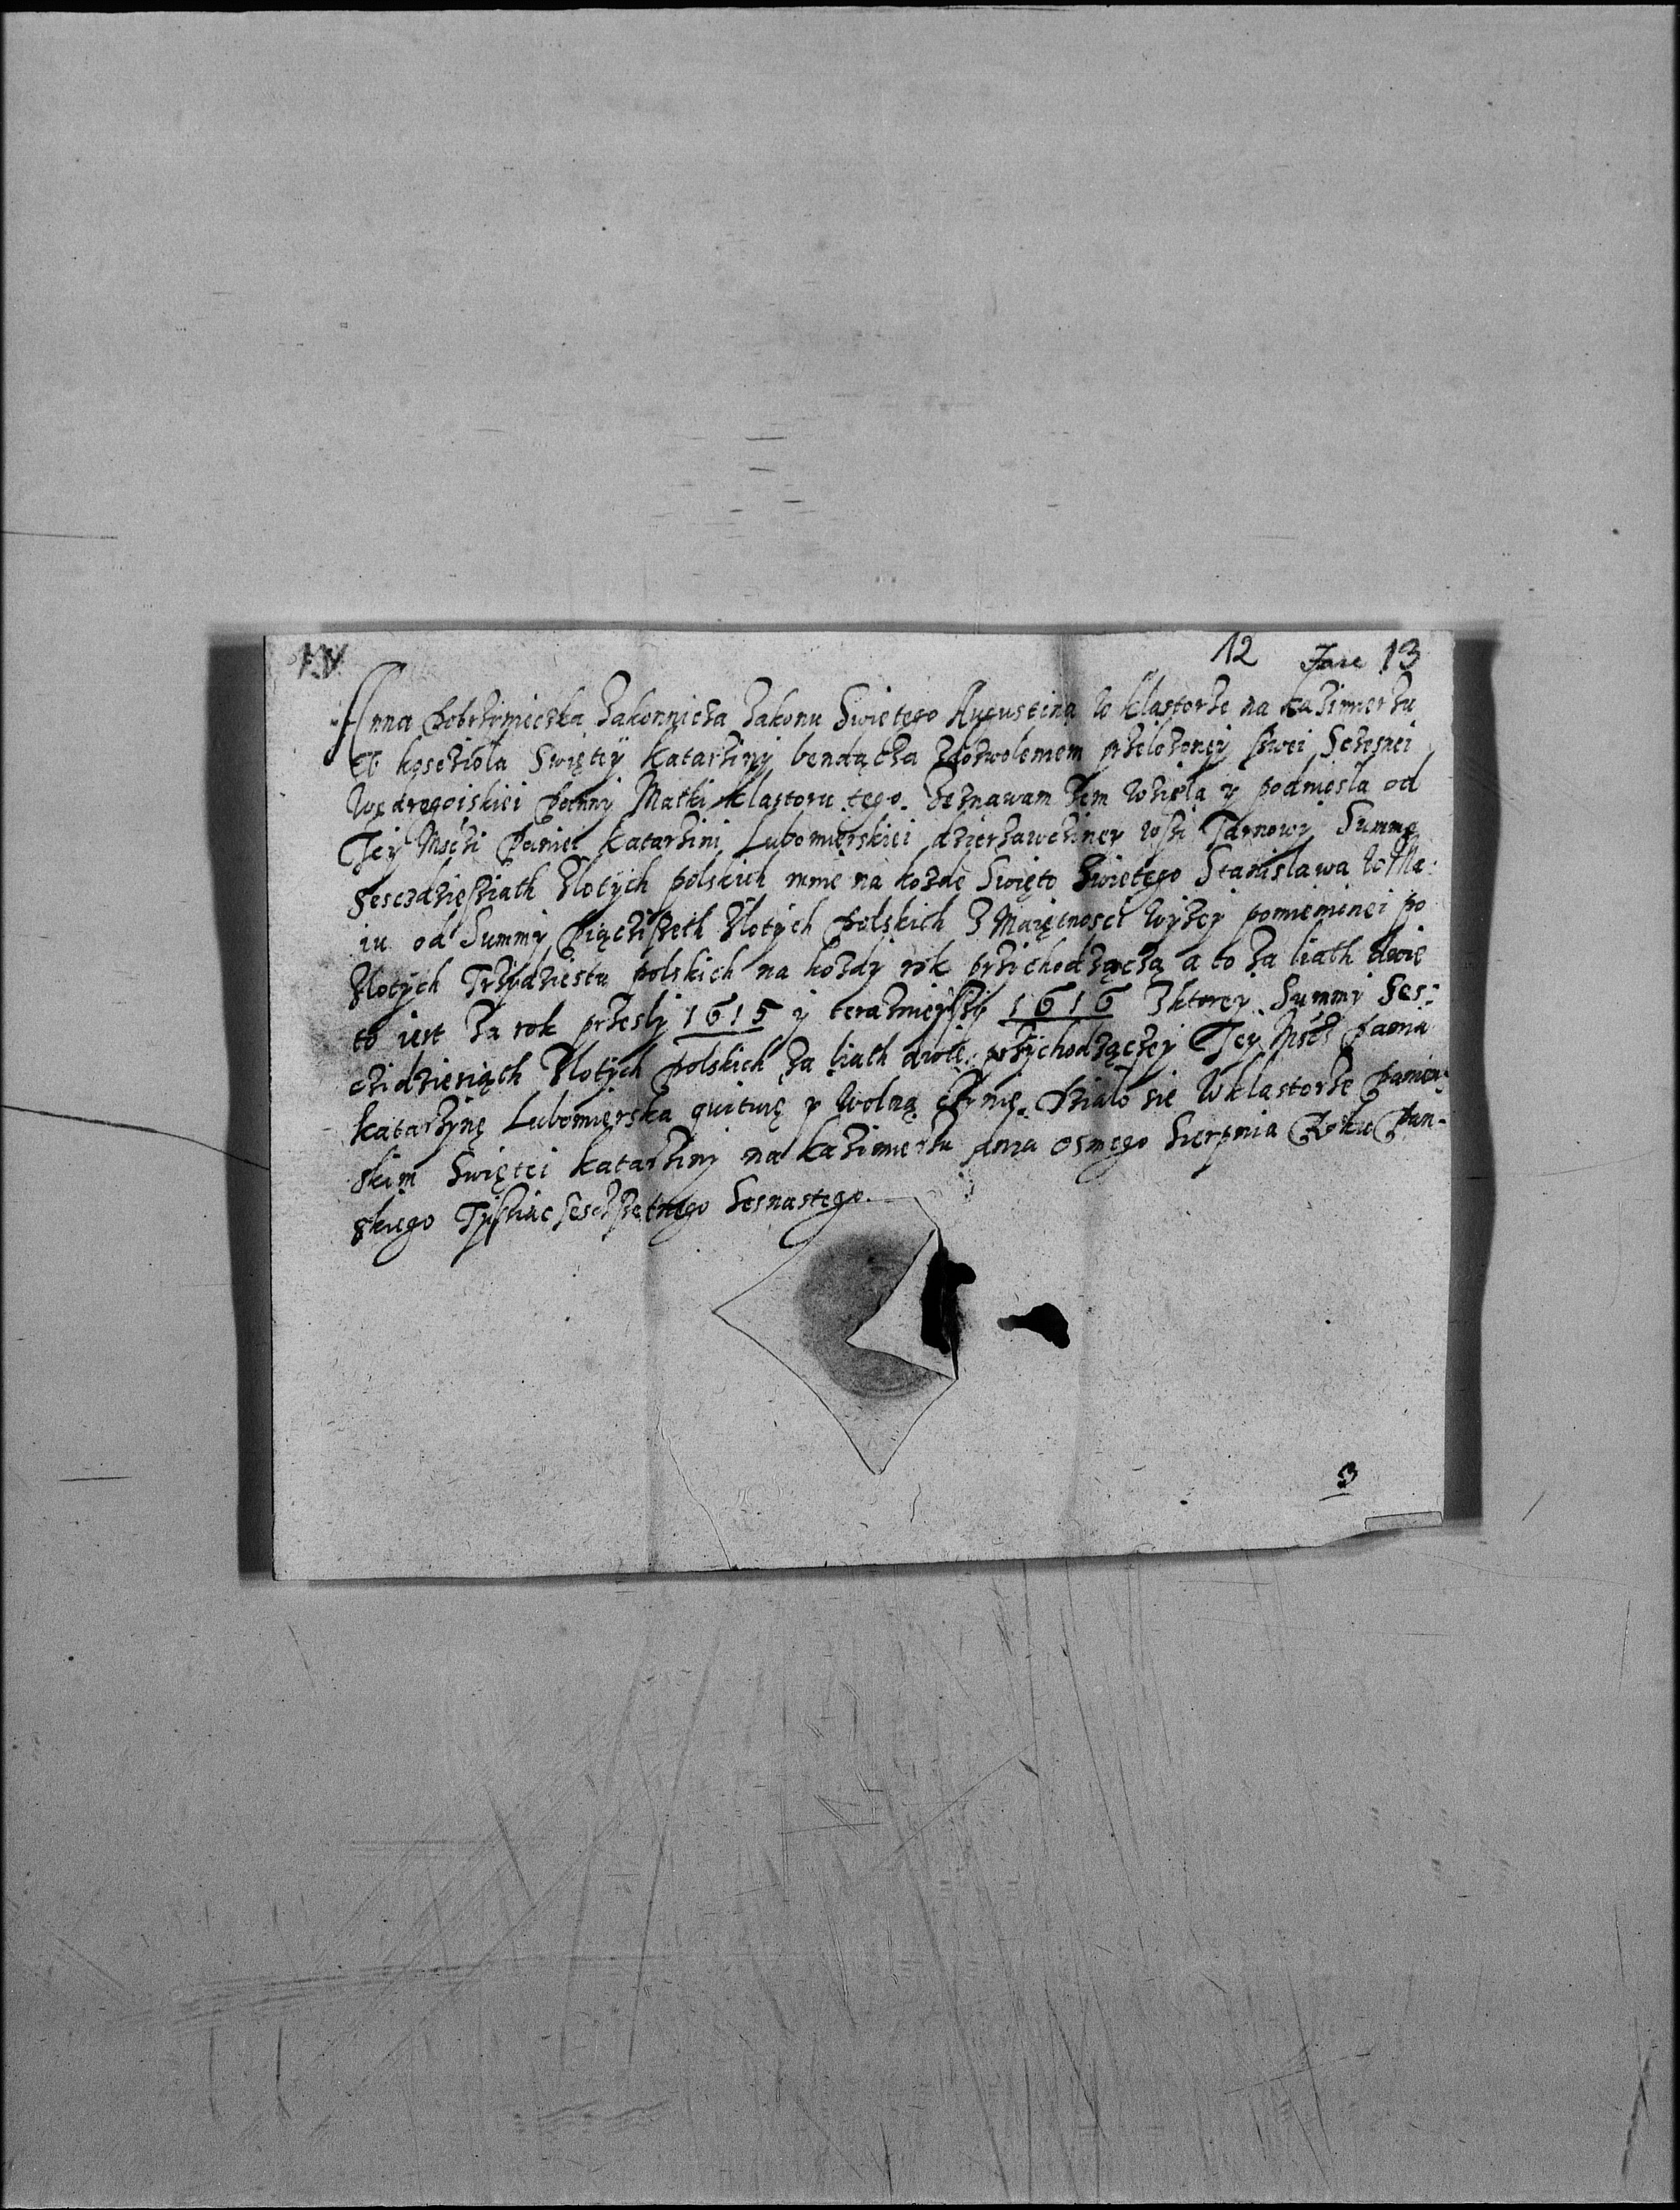 12 Jare 13
Anna Dobrzimiczka Zakonnicza Zakonu Swietego Augustina w klastorze na kazimierzu
v kosczioła Swiętÿ Katarziny bendącza zdozwoleniem przełozonęÿ swei Sczęsnei
panny Matki klastoru tego. Zeznawam zem wzieła y podniesla od
Jeÿ Msczi Paniei Katarzini Lubomierskiei dzierzawcziney wsi Tarnowÿ Summę
sesczdziesziath Złotÿch polskich mnie na kozde Swięto Swietego Stanisława w Ma:
iu od Summÿ Piącziszeth Złotÿch Polskich z Maięcnosci wÿzeÿ pomienionei po
Złotÿch Trzÿdziestu polskich na kozdÿ rok przÿchodzączą a to za liath dwie
to iest za rok przeslÿ 1615 y terazniejszÿ 1616 z ktoreÿ Summÿ Ses:
czidziesiąth Złotÿch polskich za liath dwie przÿchodząceÿ Jeÿ Mscz Panią
Katarzÿnę Lubomierską quituię y wolną czÿnię. Działo się w klastorze Panien:
skim Swiętei Katarzinÿ na Kazimierzu dnia osmego Sierpnia Roku Pan-
skiego Tÿsziąc sesczsetnego Sesnastego.
3